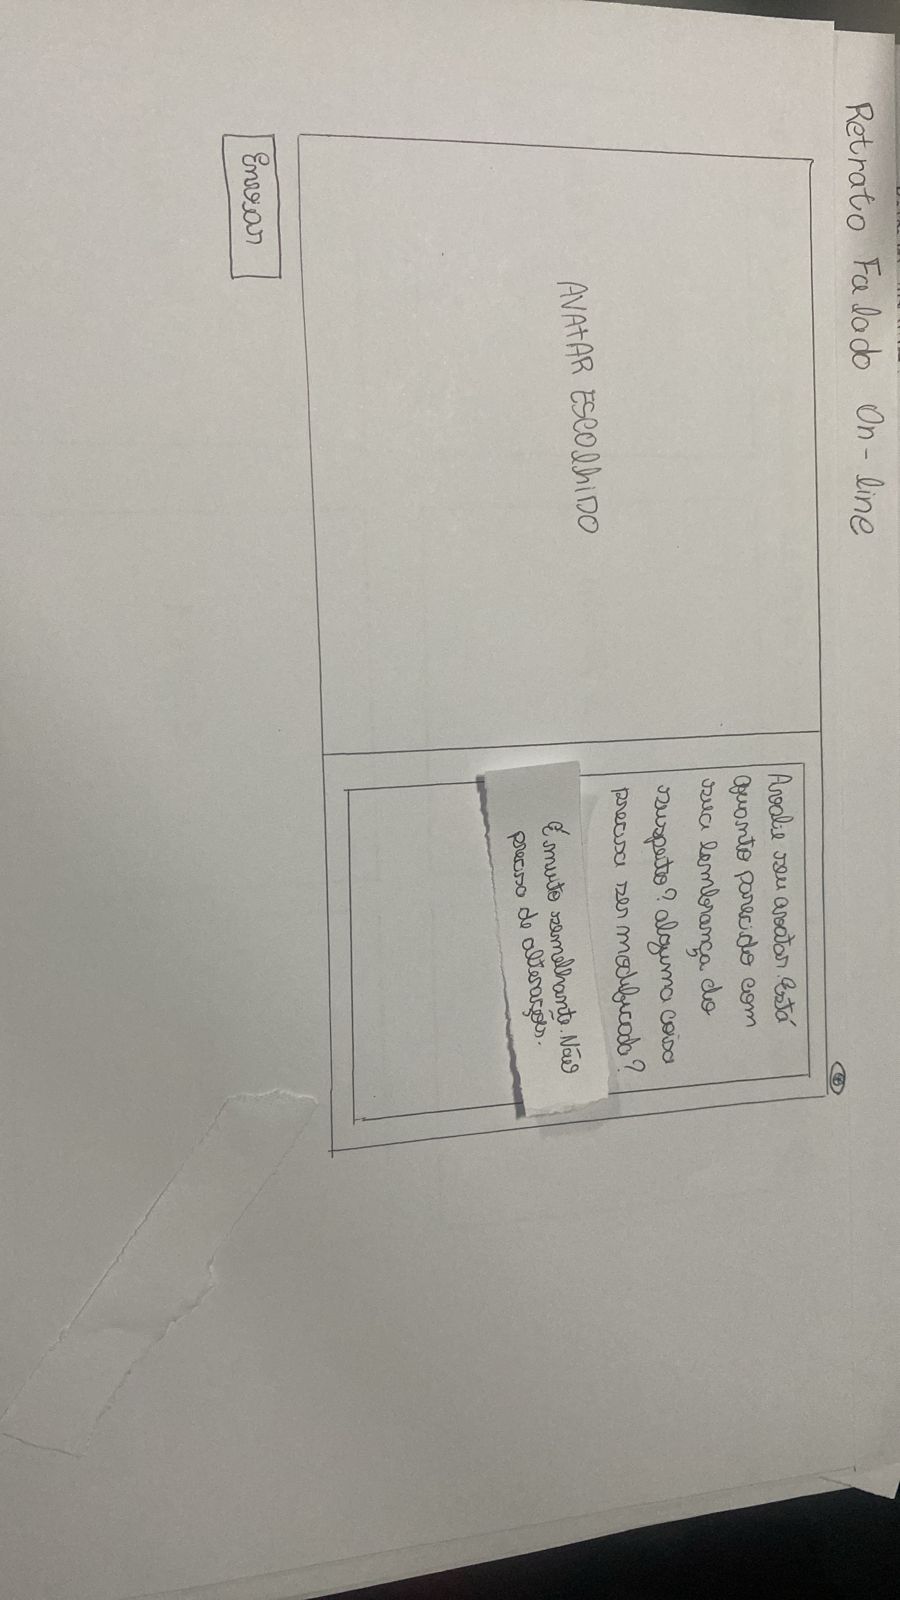 Retrato Falado On-line
Avalie seu avatar. Está
quanto parecido com
sua lembrança do
suspeito? alguma coisa
precisa ser modificada?
É muito semelhante. Não
preciso de alterações.
AVATAR ESCOLHIDO
Enviar